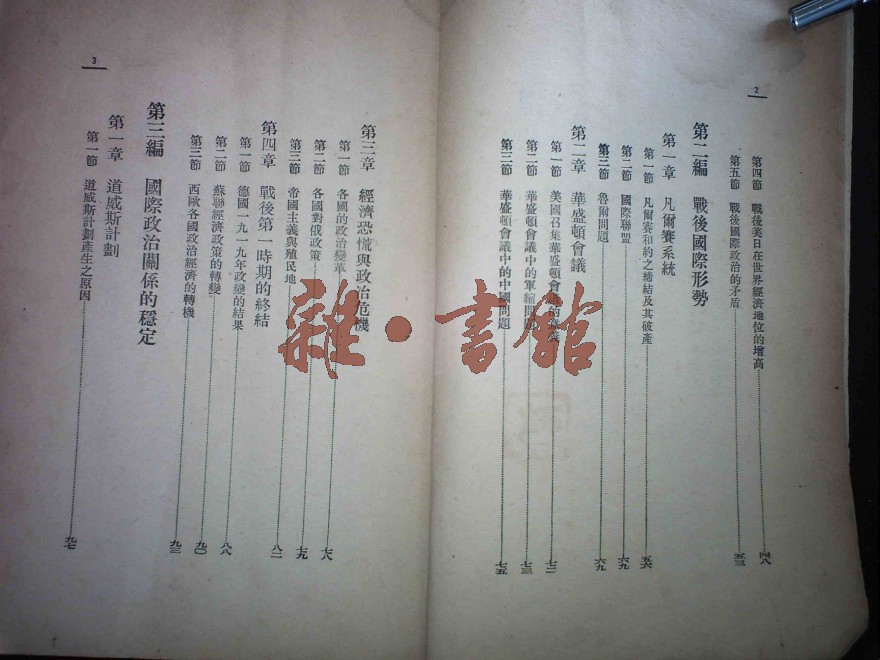 2
第四節 戰後美日在世界經濟地位的增高 四八
第五節 戰後國際政治的矛盾 五三
第二編 戰後國際形勢
第一章 凡爾賽系統
第一節 凡爾賽和約之締結及其破產 五六
第二節 國際聯盟 六九
第三節 魯爾問題 六九
第二章 華盛頓會議
第一節 美國召集華盛頓會議的 七二
第二節 華盛頓會議中的軍縮問題 七三
第三節 華盛頓會議中的中國問題 七五
3
第三章 經濟恐慌與政治危機
第一節 各國的政治變革 七八
第二節 各國對俄政策 七九
第三節 帝國主義與殖民地 八二
第四章 戰後第一時期的終結
第一節 德國一九一九年政變的結果 八八
第二節 蘇聯經濟政策的轉變 九〇
第三節 西歐各國政治經濟的轉機 九三
第三編 國際政治關係的穩定
第一章 道威斯計劃
第一節 道威斯計劃產生之原因 九七
雜·書館